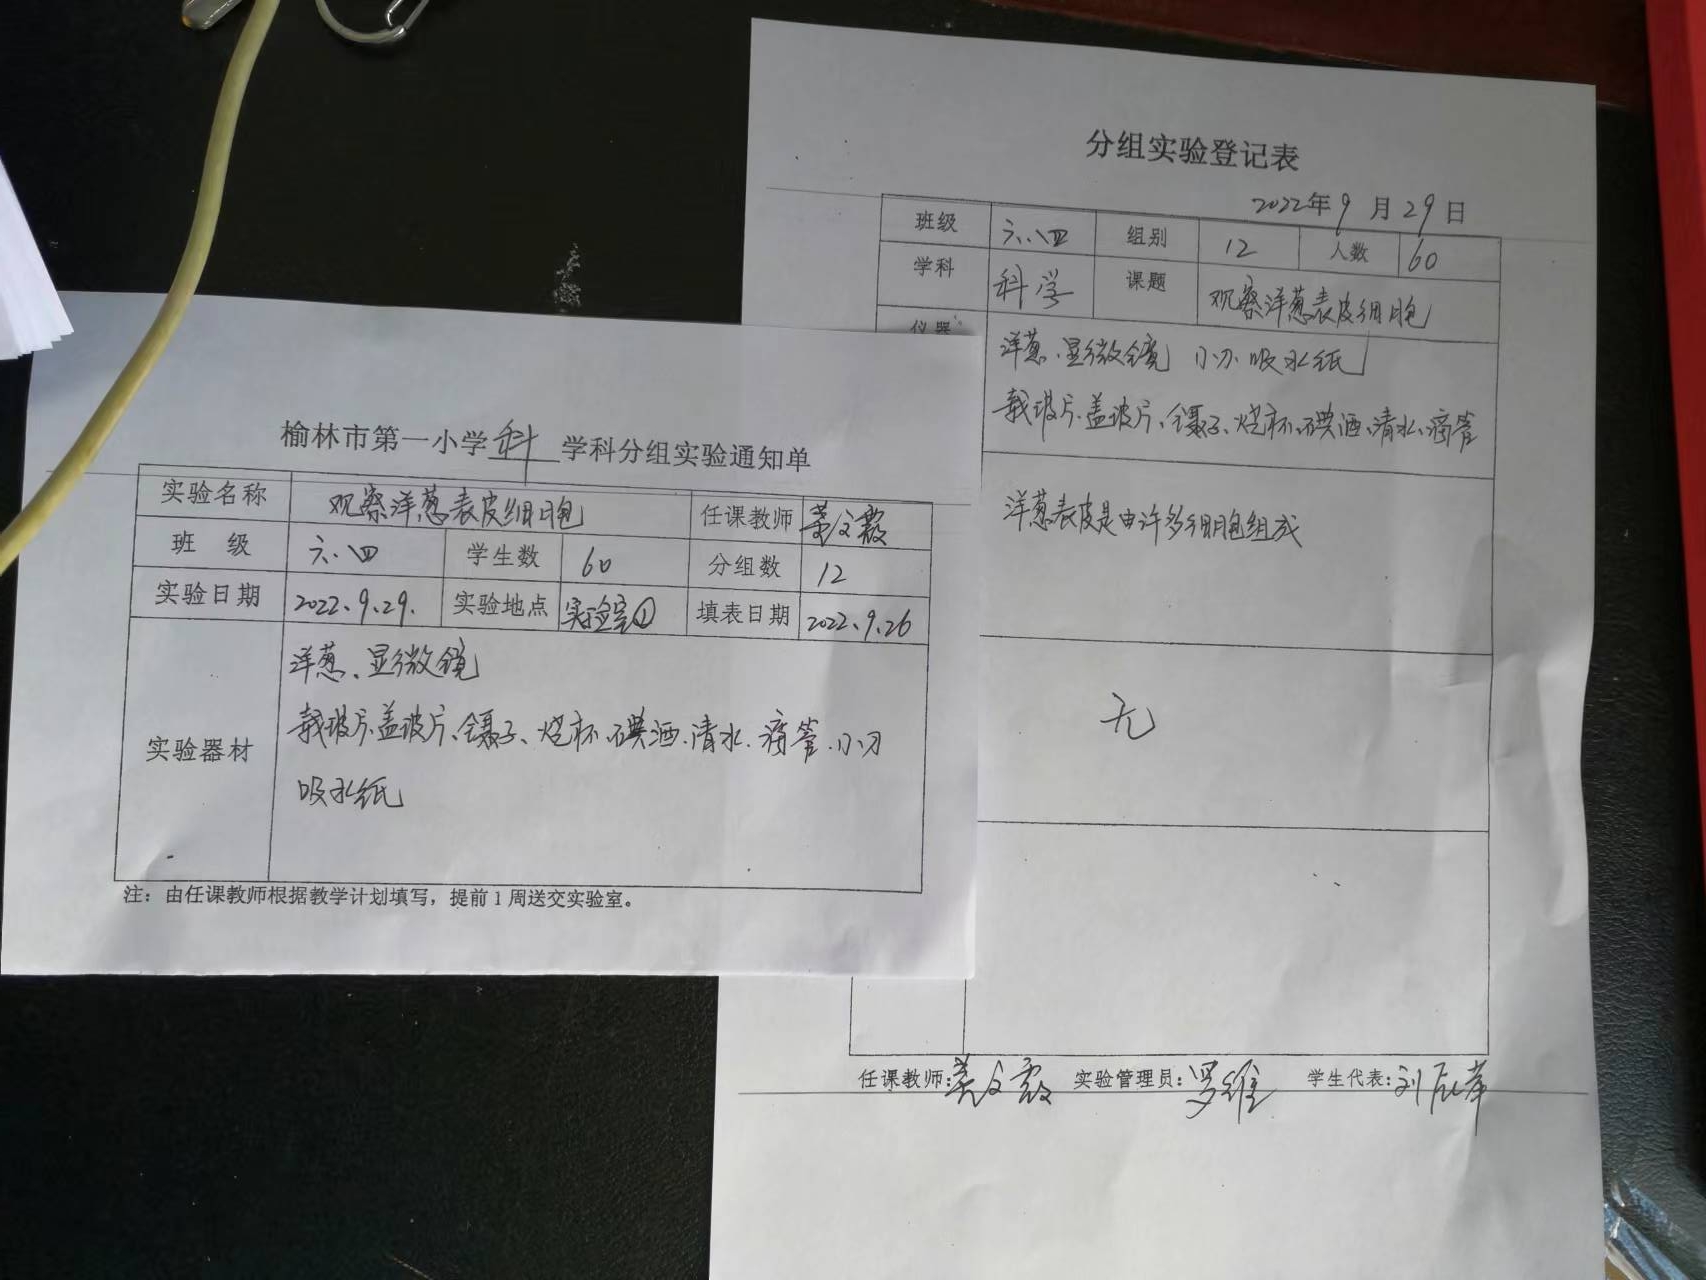 榆林市第一小学科学科分组实验通知单
实验名称 观察洋葱表皮细胞 任课教师 姜文霞
班 级 六.四 学生数 60 分组数 12
实验日期 2022、9、29. 实验地点 实验室① 填表日期 2022、9、26
实验器材
洋葱、显微镜
载玻片、盖玻片、镊子、烧杯、碘酒、清水、滴管、小刀
吸水纸
注：由任课教师根据教学计划填写，提前1周送交实验室。
分组实验登记表
2022年9月29日
班级 六.四 组别 12 人数 60
学科 科学 课题 观察洋葱表皮细胞
仪器
洋葱、显微镜 小刀、吸水纸
载玻片、盖玻片、镊子、烧杯、碘酒、清水、滴管
洋葱表皮是由许多细胞组成
无
任课教师:姜文霞 实验管理员:罗维 学生代表:刘